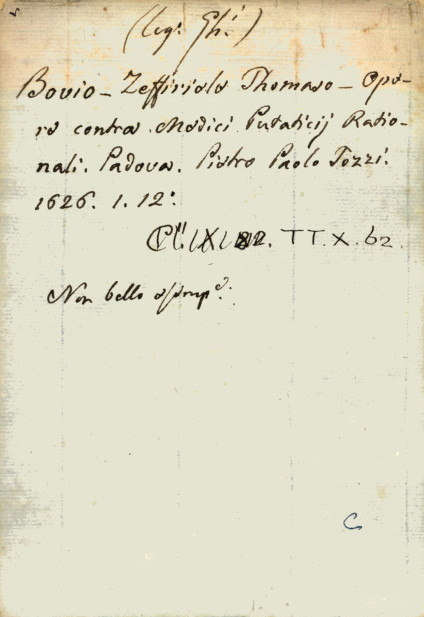 (leg: Ghi)
Bovio - Zeffiriele Thomaso - Ope-
re contra Medici Putaticij Ratio-
nali. Padova. Pietro Paolo Tozzi.
1626. 1. 12°.
TT. X. 62.
Non bello esemp.e:
C